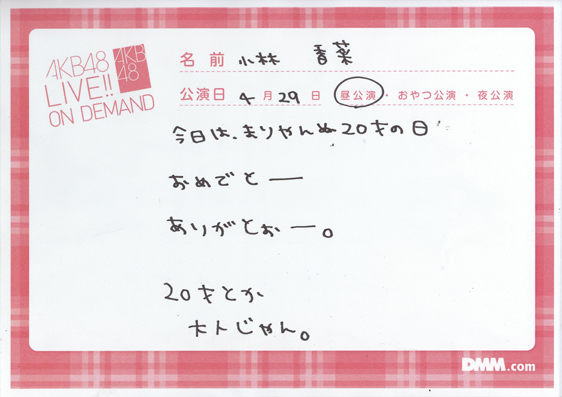 AKB48
LIVE!!
ON DEMAND
AKB
48
名前 小林 香菜
公演日 4月29日 昼公演・おやつ公演・夜公演
今日は、まりやんぬ20才の日
おめでとー
ありがとおー。
20才とか
大人じゃん。
DMM.com